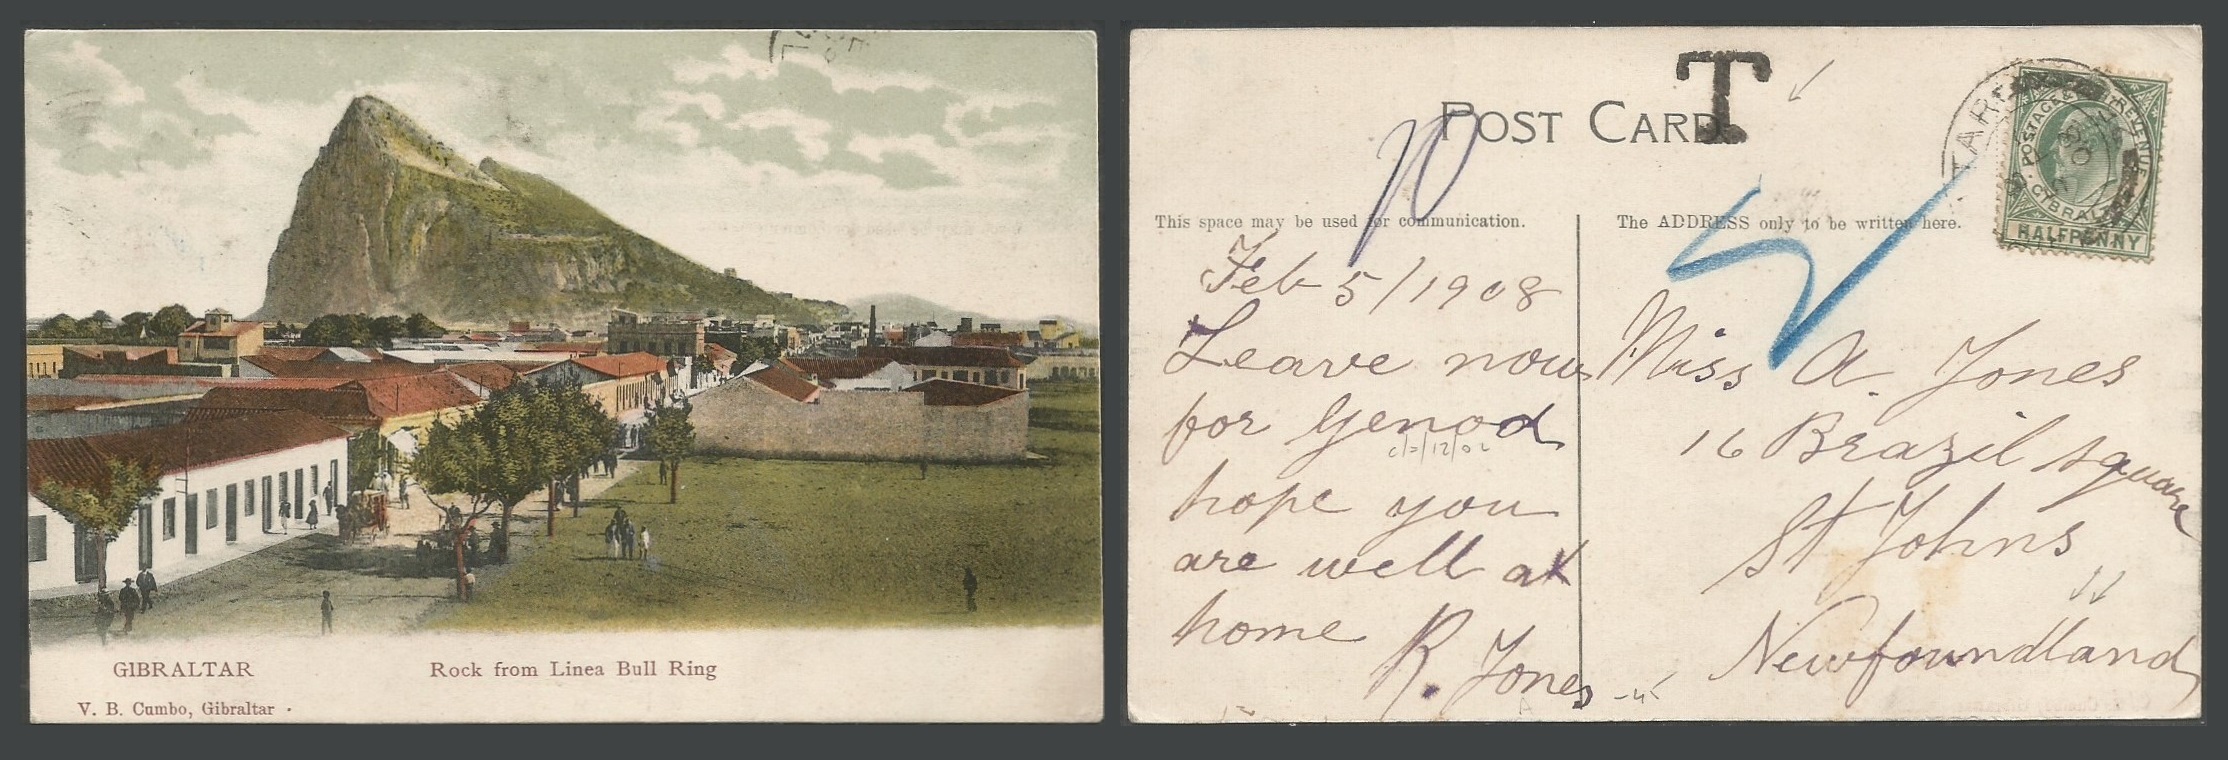 GIBRALTAR
Rock from Linea Bull Ring
V. B. Cumbo, Gibraltar
POST CARD
T
10
This space may be used for communication.
The ADDRESS only to be written here.
POSTAGE & REVENUE
GIBRALTAR
HALFPENNY
Feb 5/1908
Leave now
for Genoa
hope you
are well at
home
R. Jones
Miss A. Jones
16 Brazil square
St Johns
Newfoundland